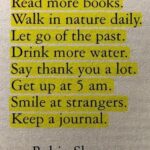 Read more books.
Walk in nature daily.
Let go of the past.
Drink more water.
Say thank you a lot.
Get up at 5 am.
Smile at strangers.
Keep a journal.